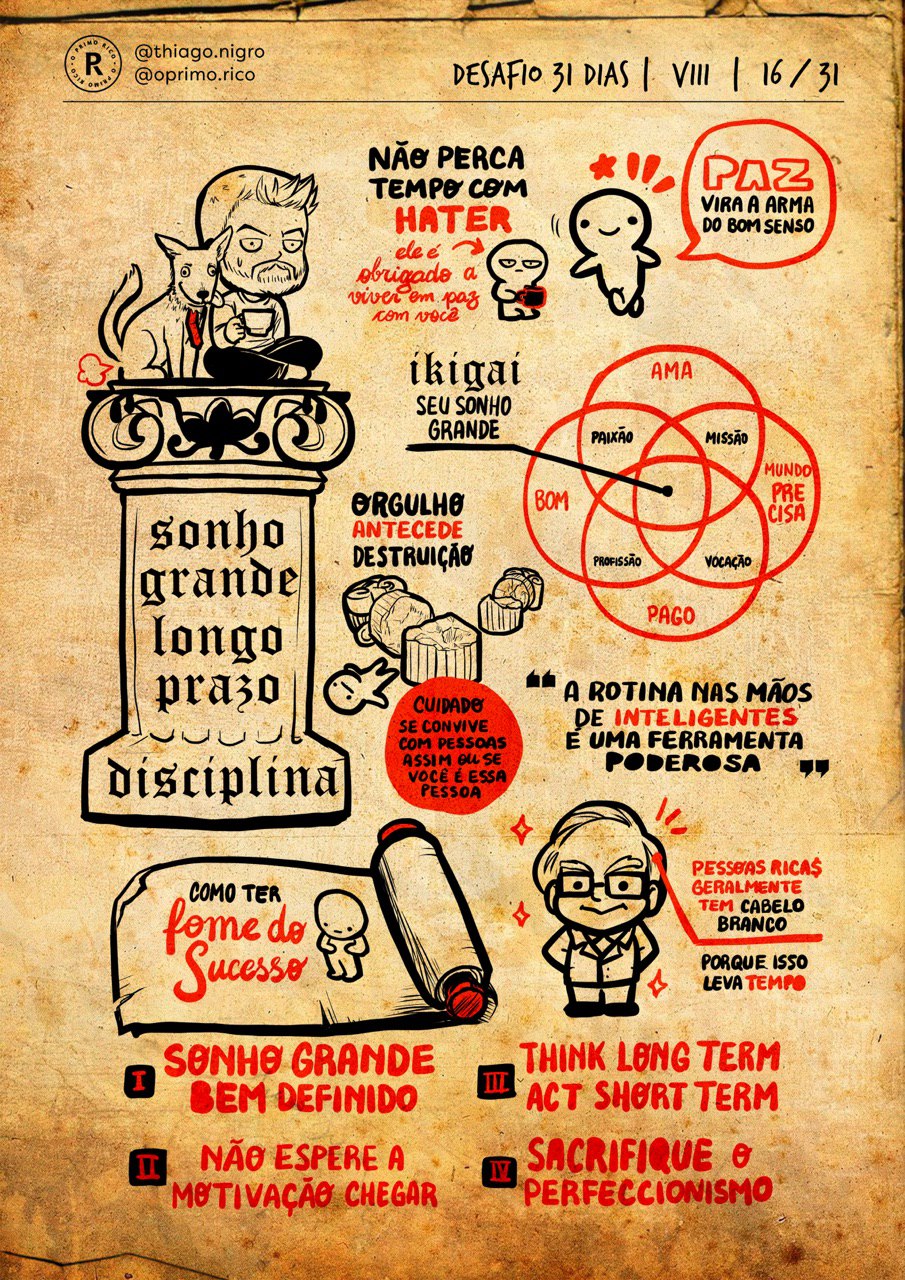 O PRIMO RICO • O PRIMO RICO •
R
@thiago.nigro
@oprimo.rico
DESAFIO 31 DIAS | VIII | 16 / 31
NÃO PERCA
TEMPO COM
HATER
ele é
obrigado a
viver em paz
com você
PAZ
VIRA A ARMA
DO BOM SENSO
ikigai
SEU SONHO
GRANDE
AMA
PAIXÃO
MISSÃO
BOM
MUNDO
PRE
CISA
PROFISSÃO
VOCAÇÃO
PAGO
sonho
grande
longo
prazo
disciplina
ORGULHO
ANTECEDE
DESTRUIÇÃO
CUIDADO
SE CONVIVE
COM PESSOAS
ASSIM OU SE
VOCÊ É ESSA
PESSOA
"A ROTINA NAS MÃOS
DE INTELIGENTES
É UMA FERRAMENTA
PODEROSA"
COMO TER
fome do
Sucesso
PESSOAS RICA$
GERALMENTE
TEM CABELO
BRANCO
PORQUE ISSO
LEVA TEMPO
I SONHO GRANDE
BEM DEFINIDO
II NÃO ESPERE A
MOTIVAÇÃO CHEGAR
III THINK LONG TERM
ACT SHORT TERM
IV SACRIFIQUE O
PERFECCIONISMO